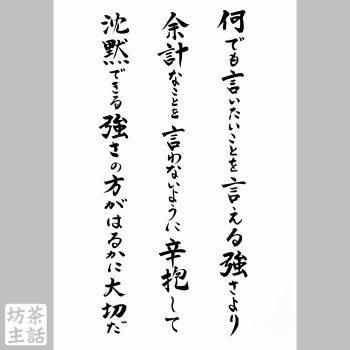 何でも言いたいことを言える強さより
余計なことを言わないように辛抱して
沈黙できる強さの方がはるかに大切だ
坊主
茶話